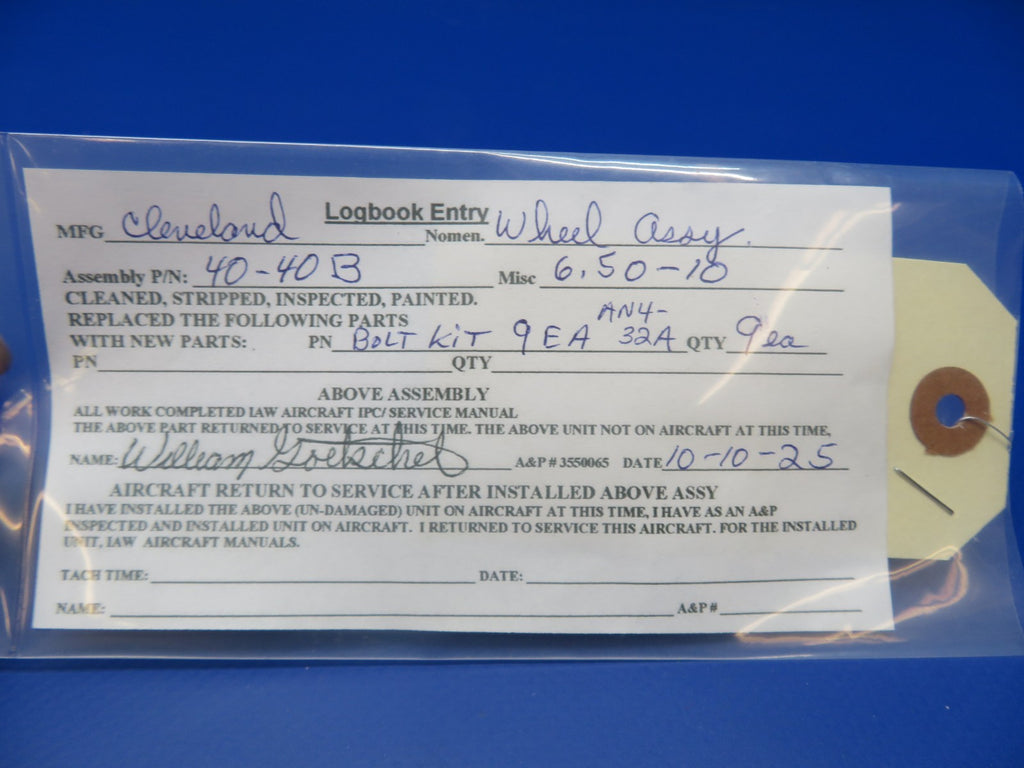 Logbook Entry
MFG Cleveland Nomen. Wheel Assy.
Assembly P/N: 40-40B Misc 6.50-10
CLEANED, STRIPPED, INSPECTED, PAINTED.
REPLACED THE FOLLOWING PARTS
WITH NEW PARTS: PN BOLT KIT 9EA AN4-32A QTY 9ea
PN QTY
ABOVE ASSEMBLY
ALL WORK COMPLETED IAW AIRCRAFT IPC/ SERVICE MANUAL
THE ABOVE PART RETURNED TO SERVICE AT THIS TIME. THE ABOVE UNIT NOT ON AIRCRAFT AT THIS TIME,
NAME: William Goetschel A&P # 3550065 DATE 10-10-25
AIRCRAFT RETURN TO SERVICE AFTER INSTALLED ABOVE ASSY
I HAVE INSTALLED THE ABOVE (UN-DAMAGED) UNIT ON AIRCRAFT AT THIS TIME, I HAVE AS AN A&P
INSPECTED AND INSTALLED UNIT ON AIRCRAFT. I RETURNED TO SERVICE THIS AIRCRAFT. FOR THE INSTALLED
UNIT, IAW AIRCRAFT MANUALS.
TACH TIME: DATE:
NAME: A&P #